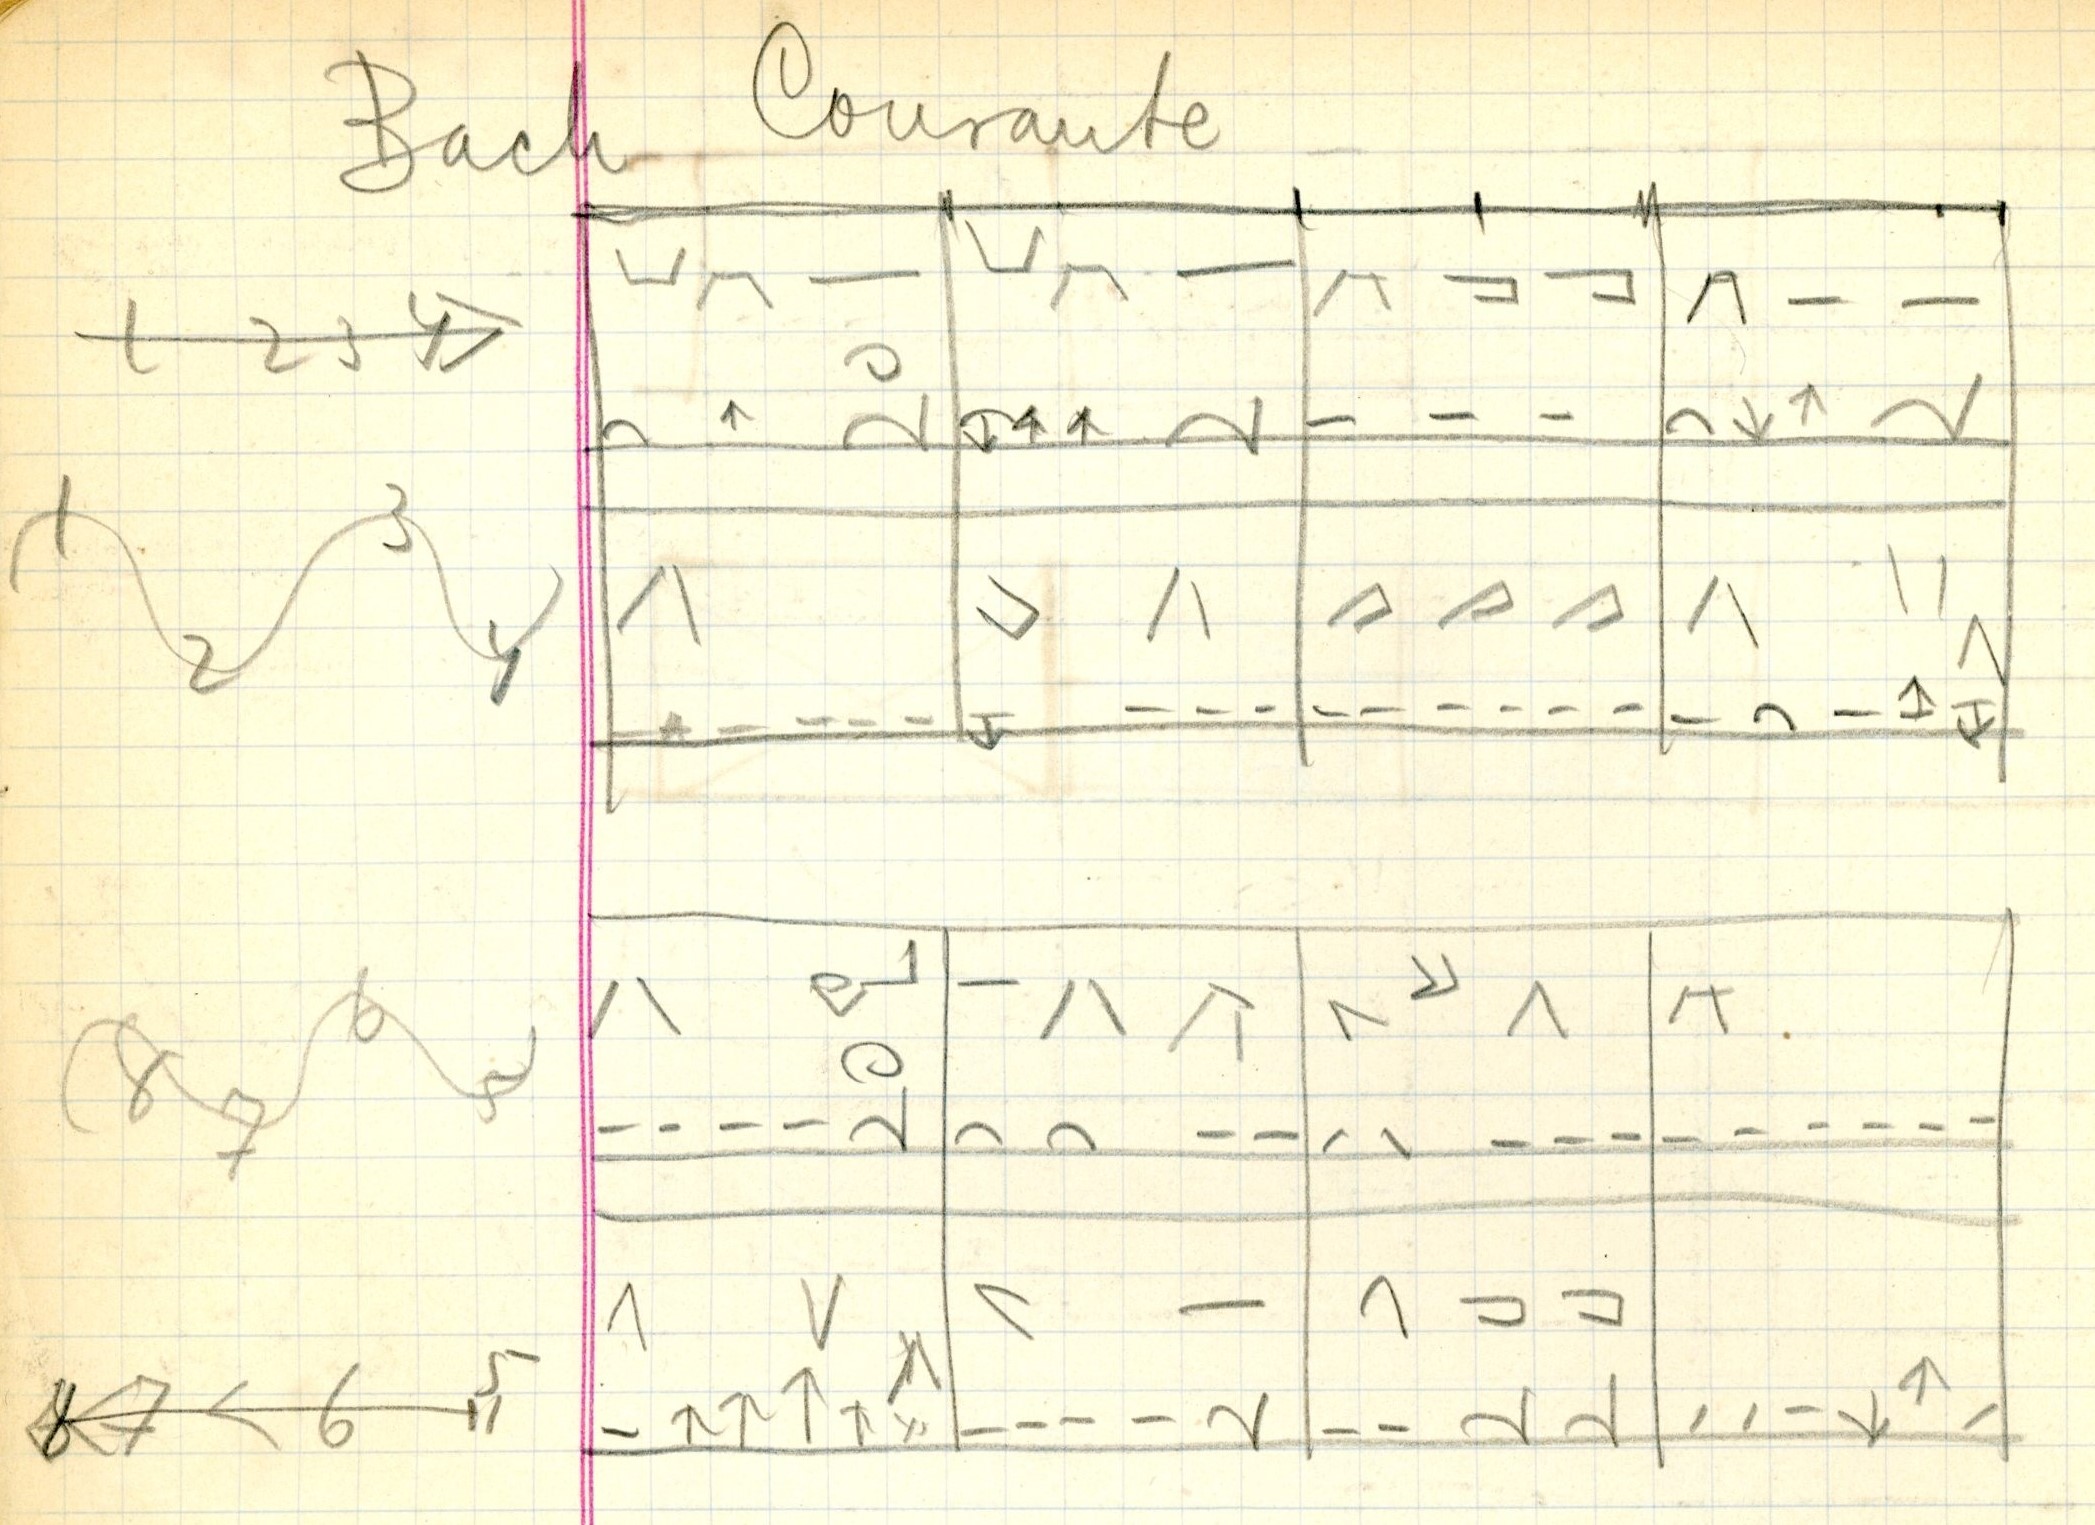 Bach Courante
1 2 3 4
1 2 3 4
8 7 6 5
8 7 6 5